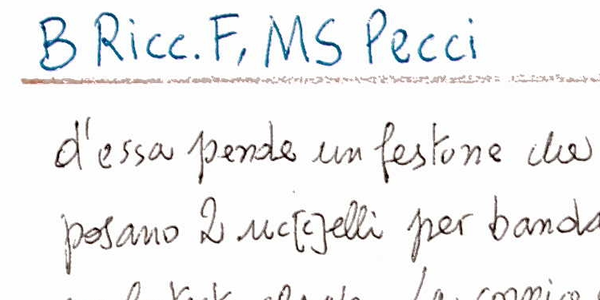 B Ricc. F, MS Pecci
d'essa pende un festone che
posano 2 uc[c]elli per banda
la